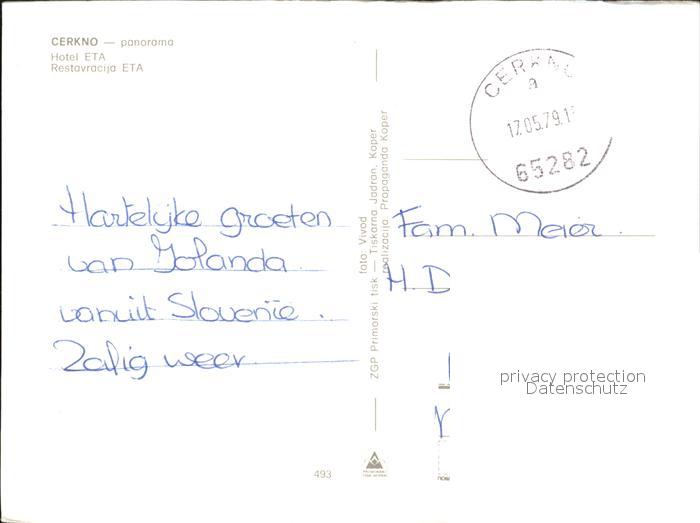 CERKNO — panorama
Hotel ETA
Restavracija ETA
CERKN
a
17.05.79.1
65282
Hartelijke groeten
van Jolanda
vanuit Slovenïe.
Zalig weer
foto: Vivod
ZGP Primorski tisk — Tiskarna Jadran, Koper
realizacija Propaganda Koper
Fam. Meier.
H. D
privacy protection
Datenschutz
493